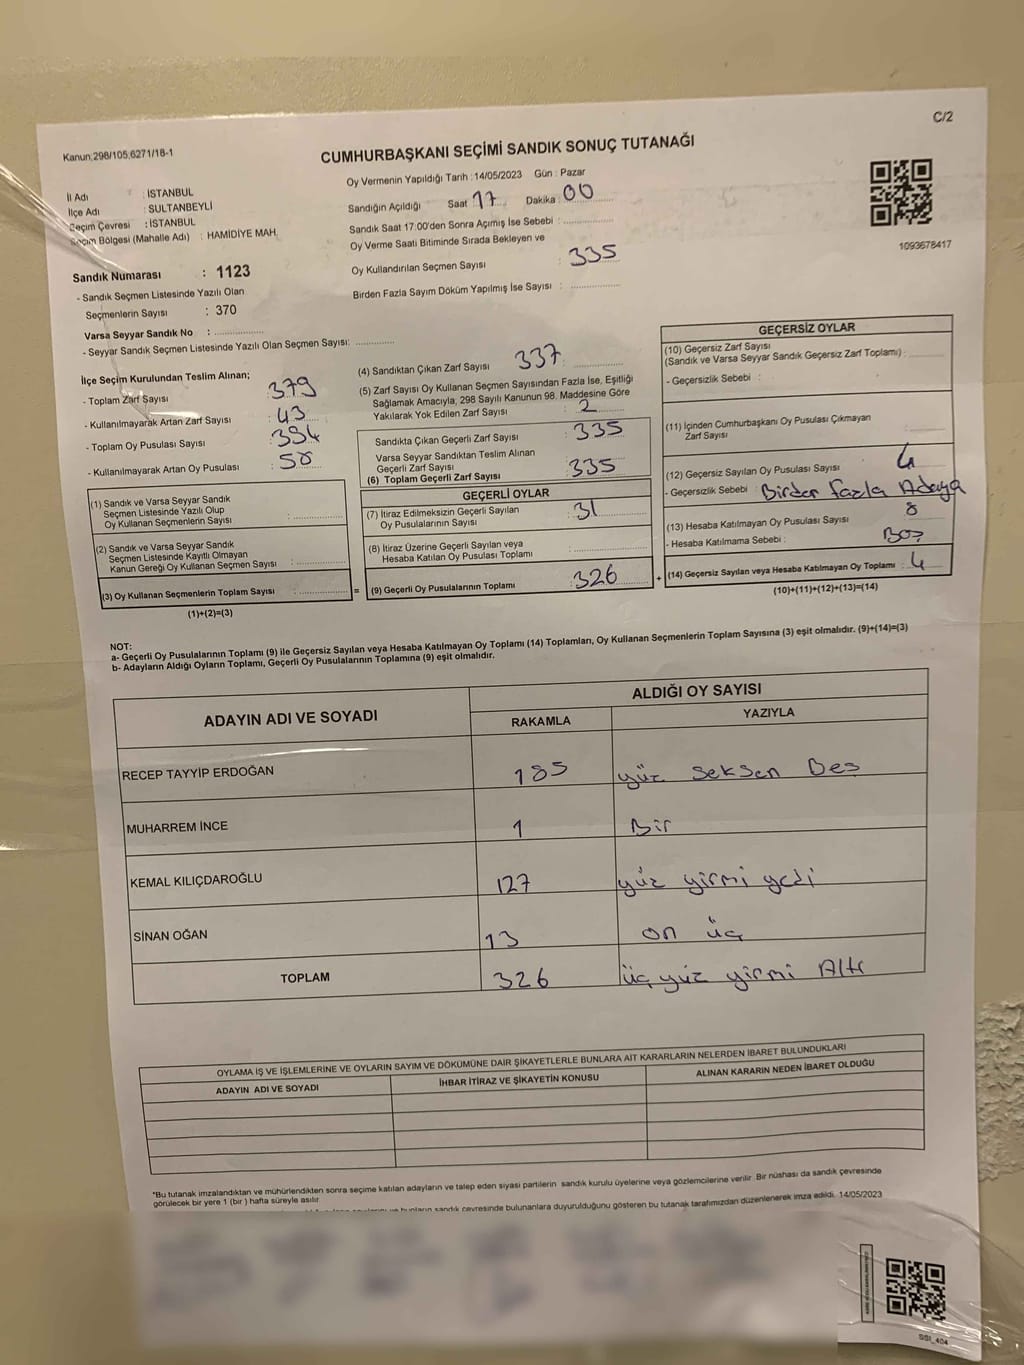 C/2
Kanun:298/105,6271/18-1
CUMHURBAŞKANI SEÇİMİ SANDIK SONUÇ TUTANAĞI
İl Adı : İSTANBUL
İlçe Adı : SULTANBEYLİ
Seçim Çevresi : İSTANBUL
Seçim Bölgesi (Mahalle Adı) : HAMİDİYE MAH.
Sandık Numarası : 1123
- Sandık Seçmen Listesinde Yazılı Olan
Seçmenlerin Sayısı : 370
Varsa Seyyar Sandık No :
- Seyyar Sandık Seçmen Listesinde Yazılı Olan Seçmen Sayısı:
Oy Vermenin Yapıldığı Tarih :14/05/2023 Gün : Pazar
Sandığın Açıldığı Saat 17 Dakika 00
Sandık Saat 17:00'den Sonra Açımış İse Sebebi :
Oy Verme Saati Bitiminde Sırada Bekleyen ve
Oy Kullandırılan Seçmen Sayısı : 335
Birden Fazla Sayım Döküm Yapılmış İse Sayısı :
1093678417
İlçe Seçim Kurulundan Teslim Alınan;
- Toplam Zarf Sayısı : 379
- Kullanılmayarak Artan Zarf Sayısı : 43
- Toplam Oy Pusulası Sayısı : 394
- Kullanılmayarak Artan Oy Pusulası : 58
(1) Sandık ve Varsa Seyyar Sandık
Seçmen Listesinde Yazılı Olup
Oy Kullanan Seçmenlerin Sayısı :
(2) Sandık ve Varsa Seyyar Sandık
Seçmen Listesinde Kayıtlı Olmayan
Kanun Gereği Oy Kullanan Seçmen Sayısı :
(3) Oy Kullanan Seçmenlerin Toplam Sayısı :
(1)+(2)=(3)
=
(4) Sandıktan Çıkan Zarf Sayısı : 337
(5) Zarf Sayısı Oy Kullanan Seçmen Sayısından Fazla İse, Eşitliği
Sağlamak Amacıyla, 298 Sayılı Kanunun 98. Maddesine Göre
Yakılarak Yok Edilen Zarf Sayısı : 2
Sandıkta Çıkan Geçerli Zarf Sayısı : 335
Varsa Seyyar Sandıktan Teslim Alınan
Geçerli Zarf Sayısı
(6) Toplam Geçerli Zarf Sayısı : 335
GEÇERLİ OYLAR
(7) İtiraz Edilmeksizin Geçerli Sayılan
Oy Pusulalarının Sayısı : 31
(8) İtiraz Üzerine Geçerli Sayılan veya
Hesaba Katılan Oy Pusulası Toplamı :
(9) Geçerli Oy Pusulalarının Toplamı : 326
+
GEÇERSİZ OYLAR
(10) Geçersiz Zarf Sayısı
(Sandık ve Varsa Seyyar Sandık Geçersiz Zarf Toplamı) :
- Geçersizlik Sebebi :
(11) İçinden Cumhurbaşkanı Oy Pusulası Çıkmayan
Zarf Sayısı :
(12) Geçersiz Sayılan Oy Pusulası Sayısı : 4
- Geçersizlik Sebebi : Birden fazla Adaya
(13) Hesaba Katılmayan Oy Pusulası Sayısı :
- Hesaba Katılmama Sebebi : Boş
(14) Geçersiz Sayılan veya Hesaba Katılmayan Oy Toplamı : 4
(10)+(11)+(12)+(13)=(14)
NOT:
a- Geçerli Oy Pusulalarının Toplamı (9) ile Geçersiz Sayılan veya Hesaba Katılmayan Oy Toplamı (14) Toplamları, Oy Kullanan Seçmenlerin Toplam Sayısına (3) eşit olmalıdır. (9)+(14)=(3)
b- Adayların Aldığı Oyların Toplamı, Geçerli Oy Pusulalarının Toplamına (9) eşit olmalıdır.
ADAYIN ADI VE SOYADI
ALDIĞI OY SAYISI
RAKAMLA YAZIYLA
RECEP TAYYİP ERDOĞAN 185 yüz seksen Beş
MUHARREM İNCE 1 Bir
KEMAL KILIÇDAROĞLU 127 yüz yirmi yedi
SİNAN OĞAN 13 on üç
TOPLAM 326 üç yüz yirmi Altı
OYLAMA İŞ VE İŞLEMLERİNE VE OYLARIN SAYIM VE DÖKÜMÜNE DAİR ŞİKAYETLERLE BUNLARA AİT KARARLARIN NELERDEN İBARET BULUNDUKLARI
ADAYIN ADI VE SOYADI İHBAR İTİRAZ VE ŞİKAYETİN KONUSU ALINAN KARARIN NEDEN İBARET OLDUĞU
*Bu tutanak imzalandıktan ve mühürlendikten sonra seçime katılan adayların ve talep eden siyasi partilerin sandık kurulu üyelerine veya gözlemcilerine verilir. Bir nüshası da sandık çevresinde
görülecek bir yere 1 (bir) hafta süreyle asılır.
bunların sandık çevresinde bulunanlara duyurulduğunu gösteren bu tutanak tarafımızdan düzenlenerek imza edildi. 14/05/2023
SSI_404